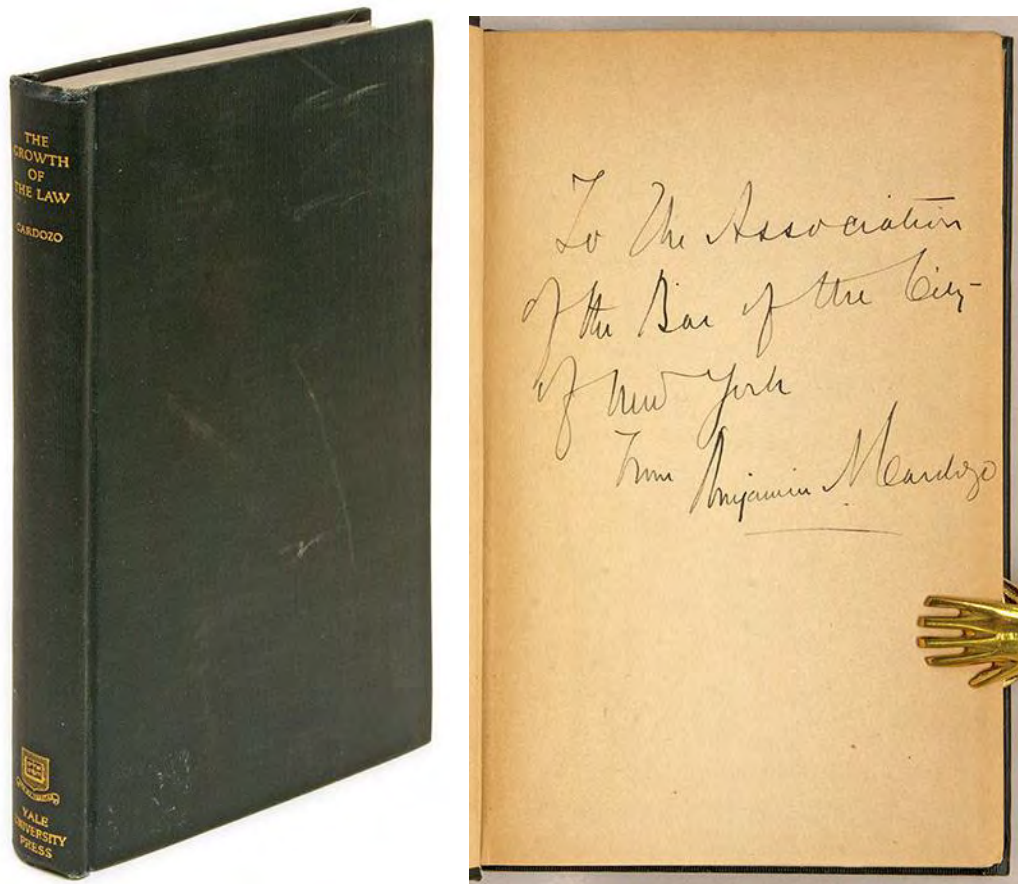 THE
GROWTH
OF
THE LAW
CARDOZO
YALE
UNIVERSITY
PRESS
To The Association
of the Bar of the City
of New York
From Benjamin N Cardozo